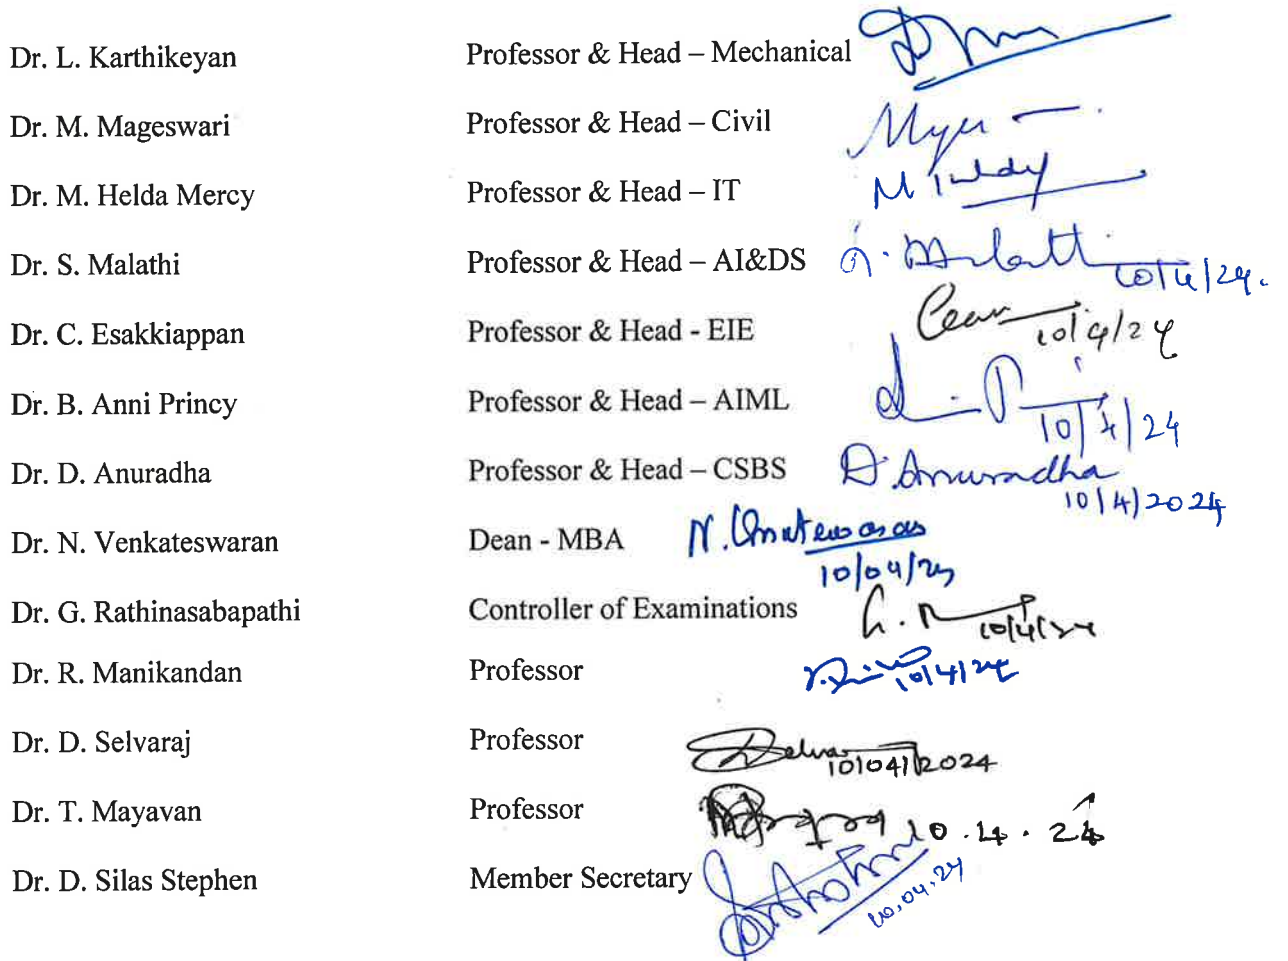 Dr. L. Karthikeyan Professor & Head – Mechanical
Dr. M. Mageswari Professor & Head – Civil
Dr. M. Helda Mercy Professor & Head – IT
Dr. S. Malathi Professor & Head – AI&DS 10/4/24.
Dr. C. Esakkiappan Professor & Head - EIE 10/4/24
Dr. B. Anni Princy Professor & Head – AIML 10/4/24
Dr. D. Anuradha Professor & Head – CSBS D. Anuradha
10/4/2024
Dr. N. Venkateswaran Dean - MBA
10/04/24
Dr. G. Rathinasabapathi Controller of Examinations 10/4/24
Dr. R. Manikandan Professor 10/4/24
Dr. D. Selvaraj Professor 10/04/2024
Dr. T. Mayavan Professor 10.4.24
Dr. D. Silas Stephen Member Secretary 10.04.24